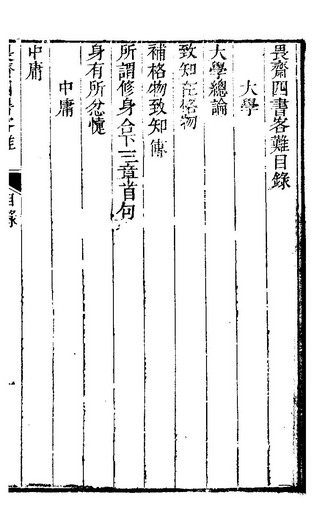 畏齋四書客難目錄
大學
大學總論
致知在格物
補格物致知傳
所謂修身合下三章首句
身有所忿懥
中庸
中庸
目錄
一